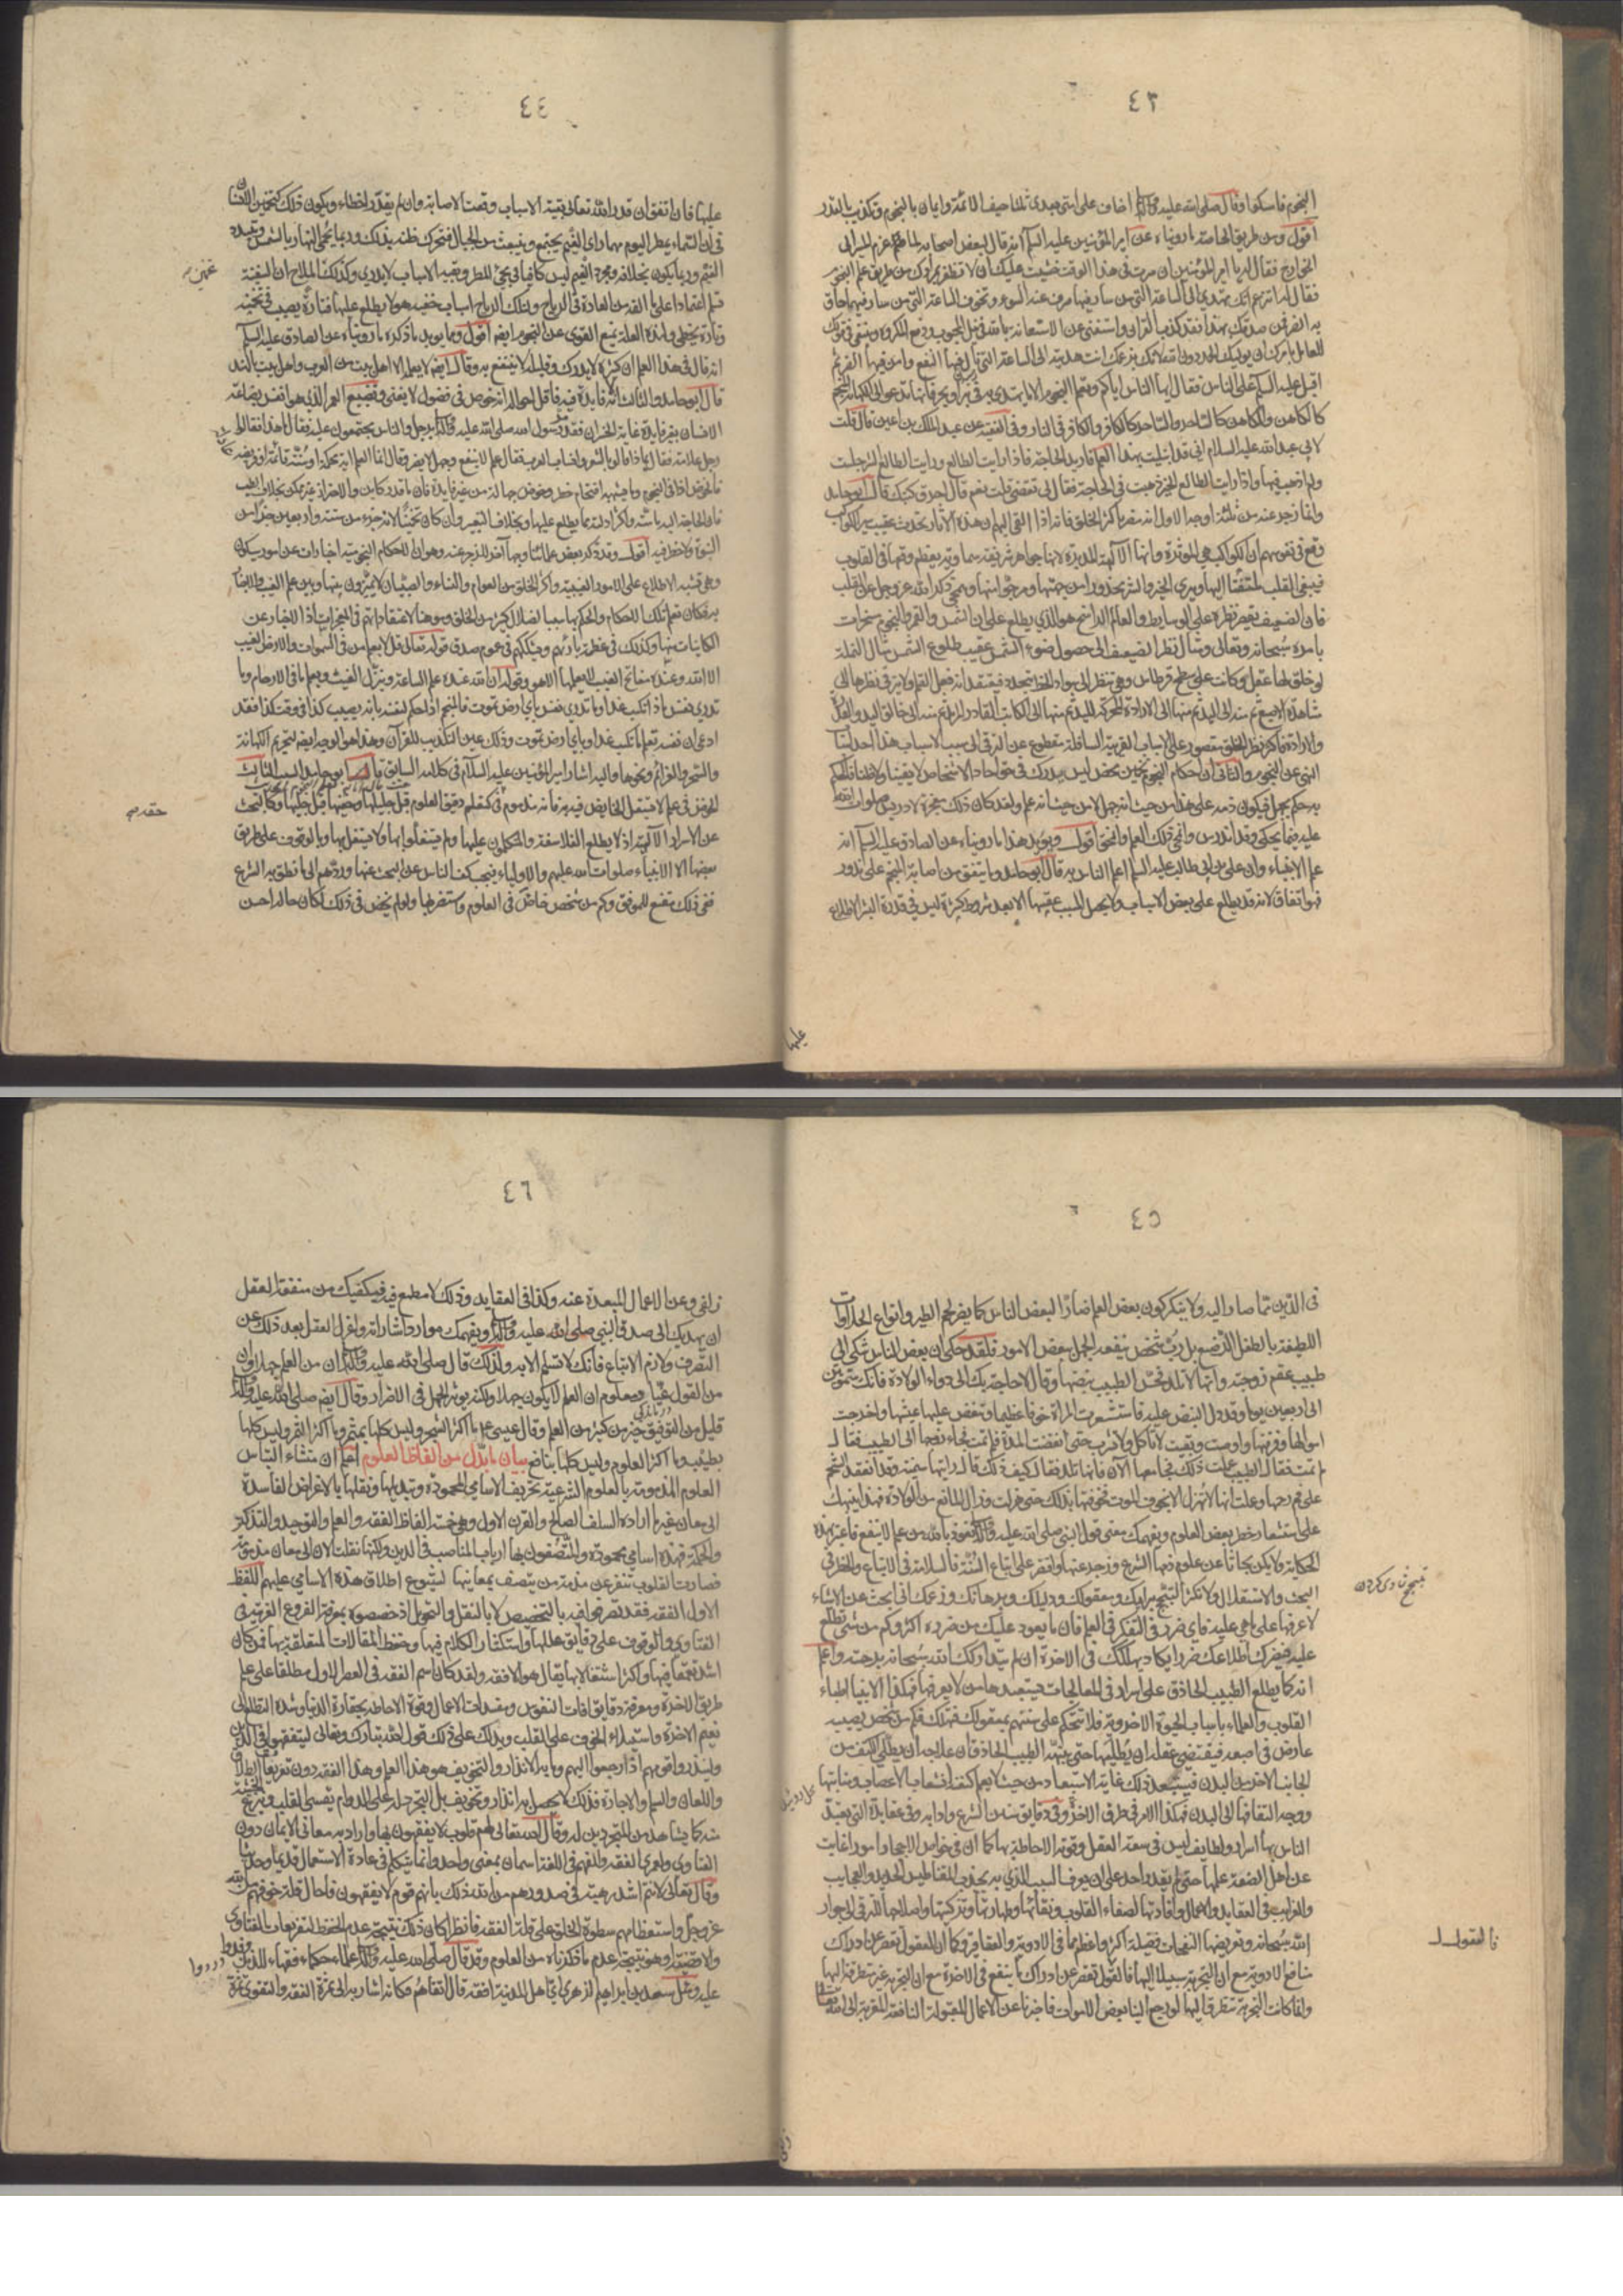 ٤٣
النجوم فامسكوا وقال صلى الله عليه وآله اخاف على امتي بعدي ثلثا حيف الائمة وايمان بالنجوم وتكذيب بالقدر
اقول ومن طريق الخاصة ما رويناه عن امير المؤمنين عليه السلام انه قال لبعض اصحابه لما عزم المسير الى
الخوارج فقال له يا امير المؤمنين ان سرت في هذا الوقت خشيت عليك ان لا تظفر بمرادك من طريق علم النجوم
فقال له اتزعم انك تهدي الى الساعة التي من سار فيها صرف عنه السوء وتخوف الساعة التي من سار فيها حاق
به الضر فمن صدقك بهذا فقد كذب القرآن واستغنى عن الاستعانة بالله في نيل المحبوب ودفع المكروه وينبغي في قولك
للعامل بامرك ان يوليك الحمد دون الله لانك بزعمك انت هديته الى الساعة التي نال فيها النفع وامن فيها الضر ثم
اقبل عليه السلم على الناس فقال ايها الناس اياكم وتعلم النجوم الا ما يهتدى به في بر او بحر فانها تدعو الى الكهانة المنجم
كالكاهن والكاهن كالساحر والساحر كالكافر والكافر في النار وفي الفقيه عن عبد الملك بن اعين قال قلت
لابي عبد الله عليه السلام اني قد ابتليت بهذا العلم فاريد الحاجة فاذا رايت الطالع ورايت الطالع الشر جلست
ولم اذهب فيها واذا رايت الطالع الخير ذهبت في الحاجة فقال لي تقضي قلت نعم قال احرق كتبك قال ابو حامد
وانما زجر عنه من ثلثة اوجه الاول انه مضر باكثر الخلق فانه اذا القي اليهم ان هذه الآثار تحدث عقيب سير الكواكب
وقع في نفوسهم ان الكواكب هي المؤثرة وانها الآلهة المدبرة لانها جواهر شريفة سماوية يعظم وقعها في القلوب
فيبقى القلب ملتفتا اليها ويرى الخير والشر محذورا من جهتها ومرجوا منها وينمحي ذكر الله عز وجل عن القلب
فان الضعيف يقصر نظره على الوسايط والعالم الراسخ هو الذي يطلع على ان الشمس والقمر والنجوم مسخرات
بامره سبحانه وتعالى ومثال نظر الضعيف الى حصول ضوء الشمس عقيب طلوع الشمس مثال النملة
لو خلق لها عقل وكانت على سطح قرطاس وهي تنظر الى سواد الخط يتجدد فيعتقد انه فعل القلم ولا يترقى نظرها الى
مشاهدة الاصبع ثم منه الى اليد ثم منها الى الارادة المحركة لليد ثم منها الى الكاتب القادر المريد ثم منه الى خالق اليد والقدرة
والارادة فاكثر نظر الخلق مقصور على الاسباب القريبة السافلة مقطوع عن الترقي الى سبب الاسباب فهذا احد اسباب
النهي عن النجوم والثاني ان احكام النجوم تخمين محض ليس يدرك في حق احاد الاشخاص لا يقينا ولا ظنا فالحكم
به حكم بجهل فيكون ذمه على هذا من حيث انه جهل لا من حيث انه علم ولقد كان ذلك معجزة لادريس صلوات الله
عليه فيما يحكى وقد اندرس وانمحى ذلك العلم وانمحق اقول ويؤيد هذا ما رويناه عن الصادق عليه السلم انه
علم الانبياء وان علي بن ابي طالب عليه السلم اعلم الناس به قال ابو حامد وما يتفق من اصابة المنجم على ندور
فهو اتفاق لانه قد يطلع على بعض الاسباب ولا يحصل المسبب عقيبها الا بعد شروط كثيرة ليس في قدرة البشر الاطلاع
عليها
٤٤
عليها فان اتفق ان قدر الله تعالى بقية الاسباب وقعت الاصابة وان لم يقدر اخطاء ويكون ذلك كتخمين الانسان
في ان السماء يمطر اليوم مهما راى الغيم يجتمع وينبعث من الجبال فيتحرك ظنه بذلك وربما يحمى النهار بالشمس ويتبدد
الغيم وربما يكون بخلافه ومجرد الغيم ليس كافيا في مجيء المطر وبقية الاسباب لا يدري وكذلك تخمين الملاح ان السفينة
تسلم اعتمادا على ما الفه من العادة في الرياح ولتلك الرياح اسباب خفية هو لا يطلع عليها فتارة يصيب في تخمينه
وتارة يخطي ولهذه العلة يمنع القوي عن النجوم ايضا اقول ومما يؤيد ما ذكره ما رويناه عن الصادق عليه السلم
انه قال في هذا العلم ان كثيره لا يدرك وقليله لا ينتفع به وقال ايضا لا يعلمها الا اهل بيت من العرب واهل بيت بالهند
قال ابو حامد والثالث انه لا فايدة فيه فاقل احواله انه خوض في فضول لا يغني وتضييع العمر الذي هو انفس بضاعة
الانسان بغير فايدة غاية الخسران فقد مر رسول الله صلى الله عليه وآله برجل والناس يجتمعون عليه فقال ما هذا فقالوا
رجل علامة فقال بماذا قالوا بالشعر وانساب العرب فقال علم لا ينفع وجهل لا يضر وقال انما العلم آية محكمة او سنة قائمة او فريضة عادلة
فالخوض اذا في النجوم وما يشبهه اقتحام خطر وخوض جهالة من غير فايدة فان ما قدر كاين والاحتراز غير ممكن بخلاف الطب
فان الحاجة اليه ماسة واكثر ادلته مما يطلع عليها وبخلاف التعبير وان كان تخمينا لانه جزء من ستة واربعين جزءا من
النبوة ولا خطر فيه اقول وقد ذكر بعض علمائنا وجها آخر للزجر عنه وهو ان الاحكام النجومية اخبارات عن امور سيكون
وهي تشبه الاطلاع على الامور الغيبية واكثر الخلق من العوام والنساء والصبيان لا يميزون بينها وبين علم الغيب والاخبار
به فكان تعلم تلك الاحكام والحكم بها سببا لضلال كثير من الخلق وموهنا لاعتقاداتهم في المعجزات اذ الاخبار عن
الكاينات منها وكذلك في عظمة بارئهم ويشككهم في عموم صدق قوله تعالى قل لا يعلم من في السموات والارض الغيب
الا الله وعنده مفاتح الغيب لا يعلمها الا هو وقوله ان الله عنده علم الساعة وينزل الغيث ويعلم ما في الارحام وما
تدري نفس ماذا تكسب غدا وما تدري نفس باي ارض تموت فالمنجم اذا حكم لنفسه بانه يصيب كذا في وقت كذا فقد
ادعى ان نفسه تعلم ما تكسب غدا وباي ارض تموت وذلك عين التكذيب للقرآن وهذا هو الوجه ايضا لتحريم الكهانة
والسحر والعزائم ونحوها واليه اشار امير المؤمنين عليه السلام في كلامه السابق قال ابو حامد السبب الثالث
الخوض في علم لا يستقل الخايض فيه به فانه مذموم في حقه كتعلم دقيق العلوم قبل جليلها وخفيها قبل جليها وكالبحث
عن الاسرار الآلهية اذ لا يطلع الفلاسفة والمتكلمون عليها ولم يستقلوا بها ولا يستقل بها وبالوقوف على طرق
بعضها الا الانبياء صلوات الله عليهم والاولياء فيجب كف الناس عن البحث عنها وردهم الى ما نطق به الشرع
ففي ذلك مقنع للموفق وكم من شخص خاض في العلوم واستضر بها ولو لم يخض في ذلك لكان حاله احسن
تخمين
حقه
٤٥
في الدين مما صار اليه ولا ينكر كون بعض العلم ضارا لبعض الناس كما يضر لحم الطير وانواع الحلاوات
اللطيفة بالطفل الرضيع بل رب شخص ينفعه الجهل ببعض الامور فلقد حكي ان بعض الناس شكى الى
طبيب عقم زوجته وانها لا تلد فجس الطبيب نبضها وقال لا حاجة بك الى دواء الولادة فانك ستموتين
الى اربعين يوما وقد دل النبض عليه فاستشعرت المراة خوفا عظيما وتنغص عليها عيشها واخرجت
اموالها وفرقتها واوصت وبقيت لا تاكل ولا تشرب حتى انقضت المدة فلم تمت فجاء زوجها الى الطبيب فقال
لم تمت فقال الطبيب علمت ذلك فجامعها الآن فانها تلد فقال كيف ذلك قال رايتها سمينة وقد انعقد الشحم
على فم رحمها وعلمت انها لا تهزل الا بخوف الموت فخوفتها بذلك حتى هزلت وزال المانع من الولادة فهذا ينبهك
على استشعار خطر بعض العلوم ويفهمك معنى قول النبي صلى الله عليه وآله نعوذ بالله من علم لا ينفع فاعتبر بهذه
الحكاية ولا يكن بحاثا عن علوم ذمها الشرع وزجر عنها واقتصر على اتباع السنة فالسلامة في الاتباع والخطر في
البحث والاستقلال ولا تكثر التبجح برايك ومعقولك ودليلك وبرهانك وزعمك اني ابحث عن الاشياء
لاعرفها على ما هي عليه فاي ضرر في التفكر في العلم فان ما يعود عليك من ضرره اكثر وكم من شيء تطلع
عليه فيضرك اطلاعك ضررا يكاد يهلكك في الاخرة ان لم يتداركك الله سبحانه برحمته واعلم
انه كما يطلع الطبيب الحاذق على اسرار في المعالجات يستبعدها من لا يعرفها فكذا الانبياء اطباء
القلوب والعلماء باسباب الحيوة الاخروية فلا تتحكم على سنتهم بمعقولك فتهلك فكم من شخص يصيبه
عارض في اصبعه فيقتضي عقله ان يطليها حتى ينبهه الطبيب الحاذق ان علاجه ان يطلى الكتف من
الجانب الاخر من البدن فيستبعد ذلك غاية الاستبعاد من حيث لا يعلم كيفية انشعاب الاعصاب ومنابتها
ووجه التفافها الى البدن فهكذا الامر في طريق الاخرة وفي دقايق سنن الشرع وادابه وفي عقايده التي تعبد
الناس بها اسرار ولطايف ليس في سعة العقل وقوته الاحاطة بها كما ان في خواص الاحجار امورا غابت
عن اهل الصنعة علمها حتى لم يقدر واحد على ان يعرف السبب الذي به يجذب المغناطيس الحديد والعجايب
والغرايب في العقايد والاعمال وافادتها لصفاء القلوب ونقائها وطهارتها وتزكيتها واصلاحها للترقي الى جوار
الله سبحانه وتعريضها لنفحات فضله اكثر واعظم مما في الادوية والعقاقير وكما ان العقول تقصر عن ادراك
منافع الادوية مع ان التجربة سبيل اليها فالعقول تقصر عن ادراك ما ينفع في الاخرة مع ان التجربة غير متطرقة اليها
وانما كانت التجربة تتطرق اليها لو رجع الينا بعض الاموات فاخبرنا عن الاعمال المقبولة النافعة المقربة الى الله تعالى
زلفى
تبجح شادي كردن
فالعقول
٤٦
زلفى وعن الاعمال المبعدة عنه وكذا في العقايد وذلك لا مطمع فيه فيكفيك من منفعة العقل
ان يهديك الى صدق النبي صلى الله عليه وآله ويفهمك موارد اشاراته واعزل العقل بعد ذلك عن
التصرف ولازم الاتباع فانك لا تسلم الا به ولذلك قال صلى الله عليه وآله ان من العلم جهلا وان
من القول عيا ومعلوم ان العلم لا يكون جهلا ولكنه يؤثر الجهل في الاضرار وقال ايضا صلى الله عليه وآله
قليل من التوفيق خير من كثير من العلم وقال عيسى ع ما اكثر الشجر وليس كلها بمثمر وما اكثر الثمر وليس كلها
بطيب وما اكثر العلوم وليس كلها بنافع بيان ما بدل من الفاظ العلوم اعلم ان منشاء التباس
العلوم المذمومة بالعلوم الشرعية تحريف الاسامي المحمودة وتبديلها ونقلها بالاغراض الفاسدة
الى معان غير ما اراده السلف الصالح والقرن الاول وهي خمسة الفاظ الفقه والعلم والتوحيد والتذكير
والحكمة فهذه اسامي محمودة والمتصفون بها ارباب المناصب في الدين ولكنها نقلت الآن الى معان مذمومة
فصارت القلوب تنفر عن مذمة من يتصف بمعانيها لشيوع اطلاق هذه الاسامي عليهم اللفظ
الاول الفقه فقد تصرفوا فيه بالتخصيص لا بالنقل والتحويل اذ خصصوه بمعرفة الفروع الغريبة في
الفتاوى والوقوف على دقايق عللها واستكثار الكلام فيها وحفظ المقالات المتعلقة بها فمن كان
اشد تعمقا فيها واكثر اشتغالا بها يقال هو الافقه ولقد كان اسم الفقه في العصر الاول مطلقا على علم
طريق الاخرة ومعرفة دقايق افات النفوس ومفسدات الاعمال وقوة الاحاطة بحقارة الدنيا وشدة التطلع الى
نعيم الاخرة واستيلاء الخوف على القلب ويدلك على ذلك قول الله تبارك وتعالى ليتفقهوا في الدين
ولينذروا قومهم اذا رجعوا اليهم وما به الانذار والتخويف هو هذا العلم وهذا الفقه دون تفريعات الطلاق
واللعان والسلم والاجارة فذلك لا يحصل به انذار وتخويف بل التجرد له على الدوام يقسي القلب وينزع الخشية
منه كما يشاهد من المتجردين له وقال الله تعالى لهم قلوب لا يفقهون بها واراد به معاني الايمان دون
الفتاوى ولعمري الفقه والفهم في اللغة اسمان بمعنى واحد وانما يتكلم في عادة الاستعمال قديما وحديثا
وقال تعالى لانتم اشد رهبة في صدورهم من الله ذلك بانهم قوم لا يفقهون فاحال قلة خوفهم من الله
عز وجل واستعظامهم سطوة الخلق على قلة الفقه فانظر اكان ذلك نتيجة عدم الحفظ لتفريعات الفتاوى
والاقضية او هو نتيجة عدم ما ذكرناه من العلوم وقد قال صلى الله عليه وآله علماء حكماء فقهاء للذين وفدوا
عليه وسئل سعد بن ابراهيم الزهري اي اهل المدينة افقه قال اتقاهم فكانه اشار به الى ثمرة الفقه والتقوى ثمرة